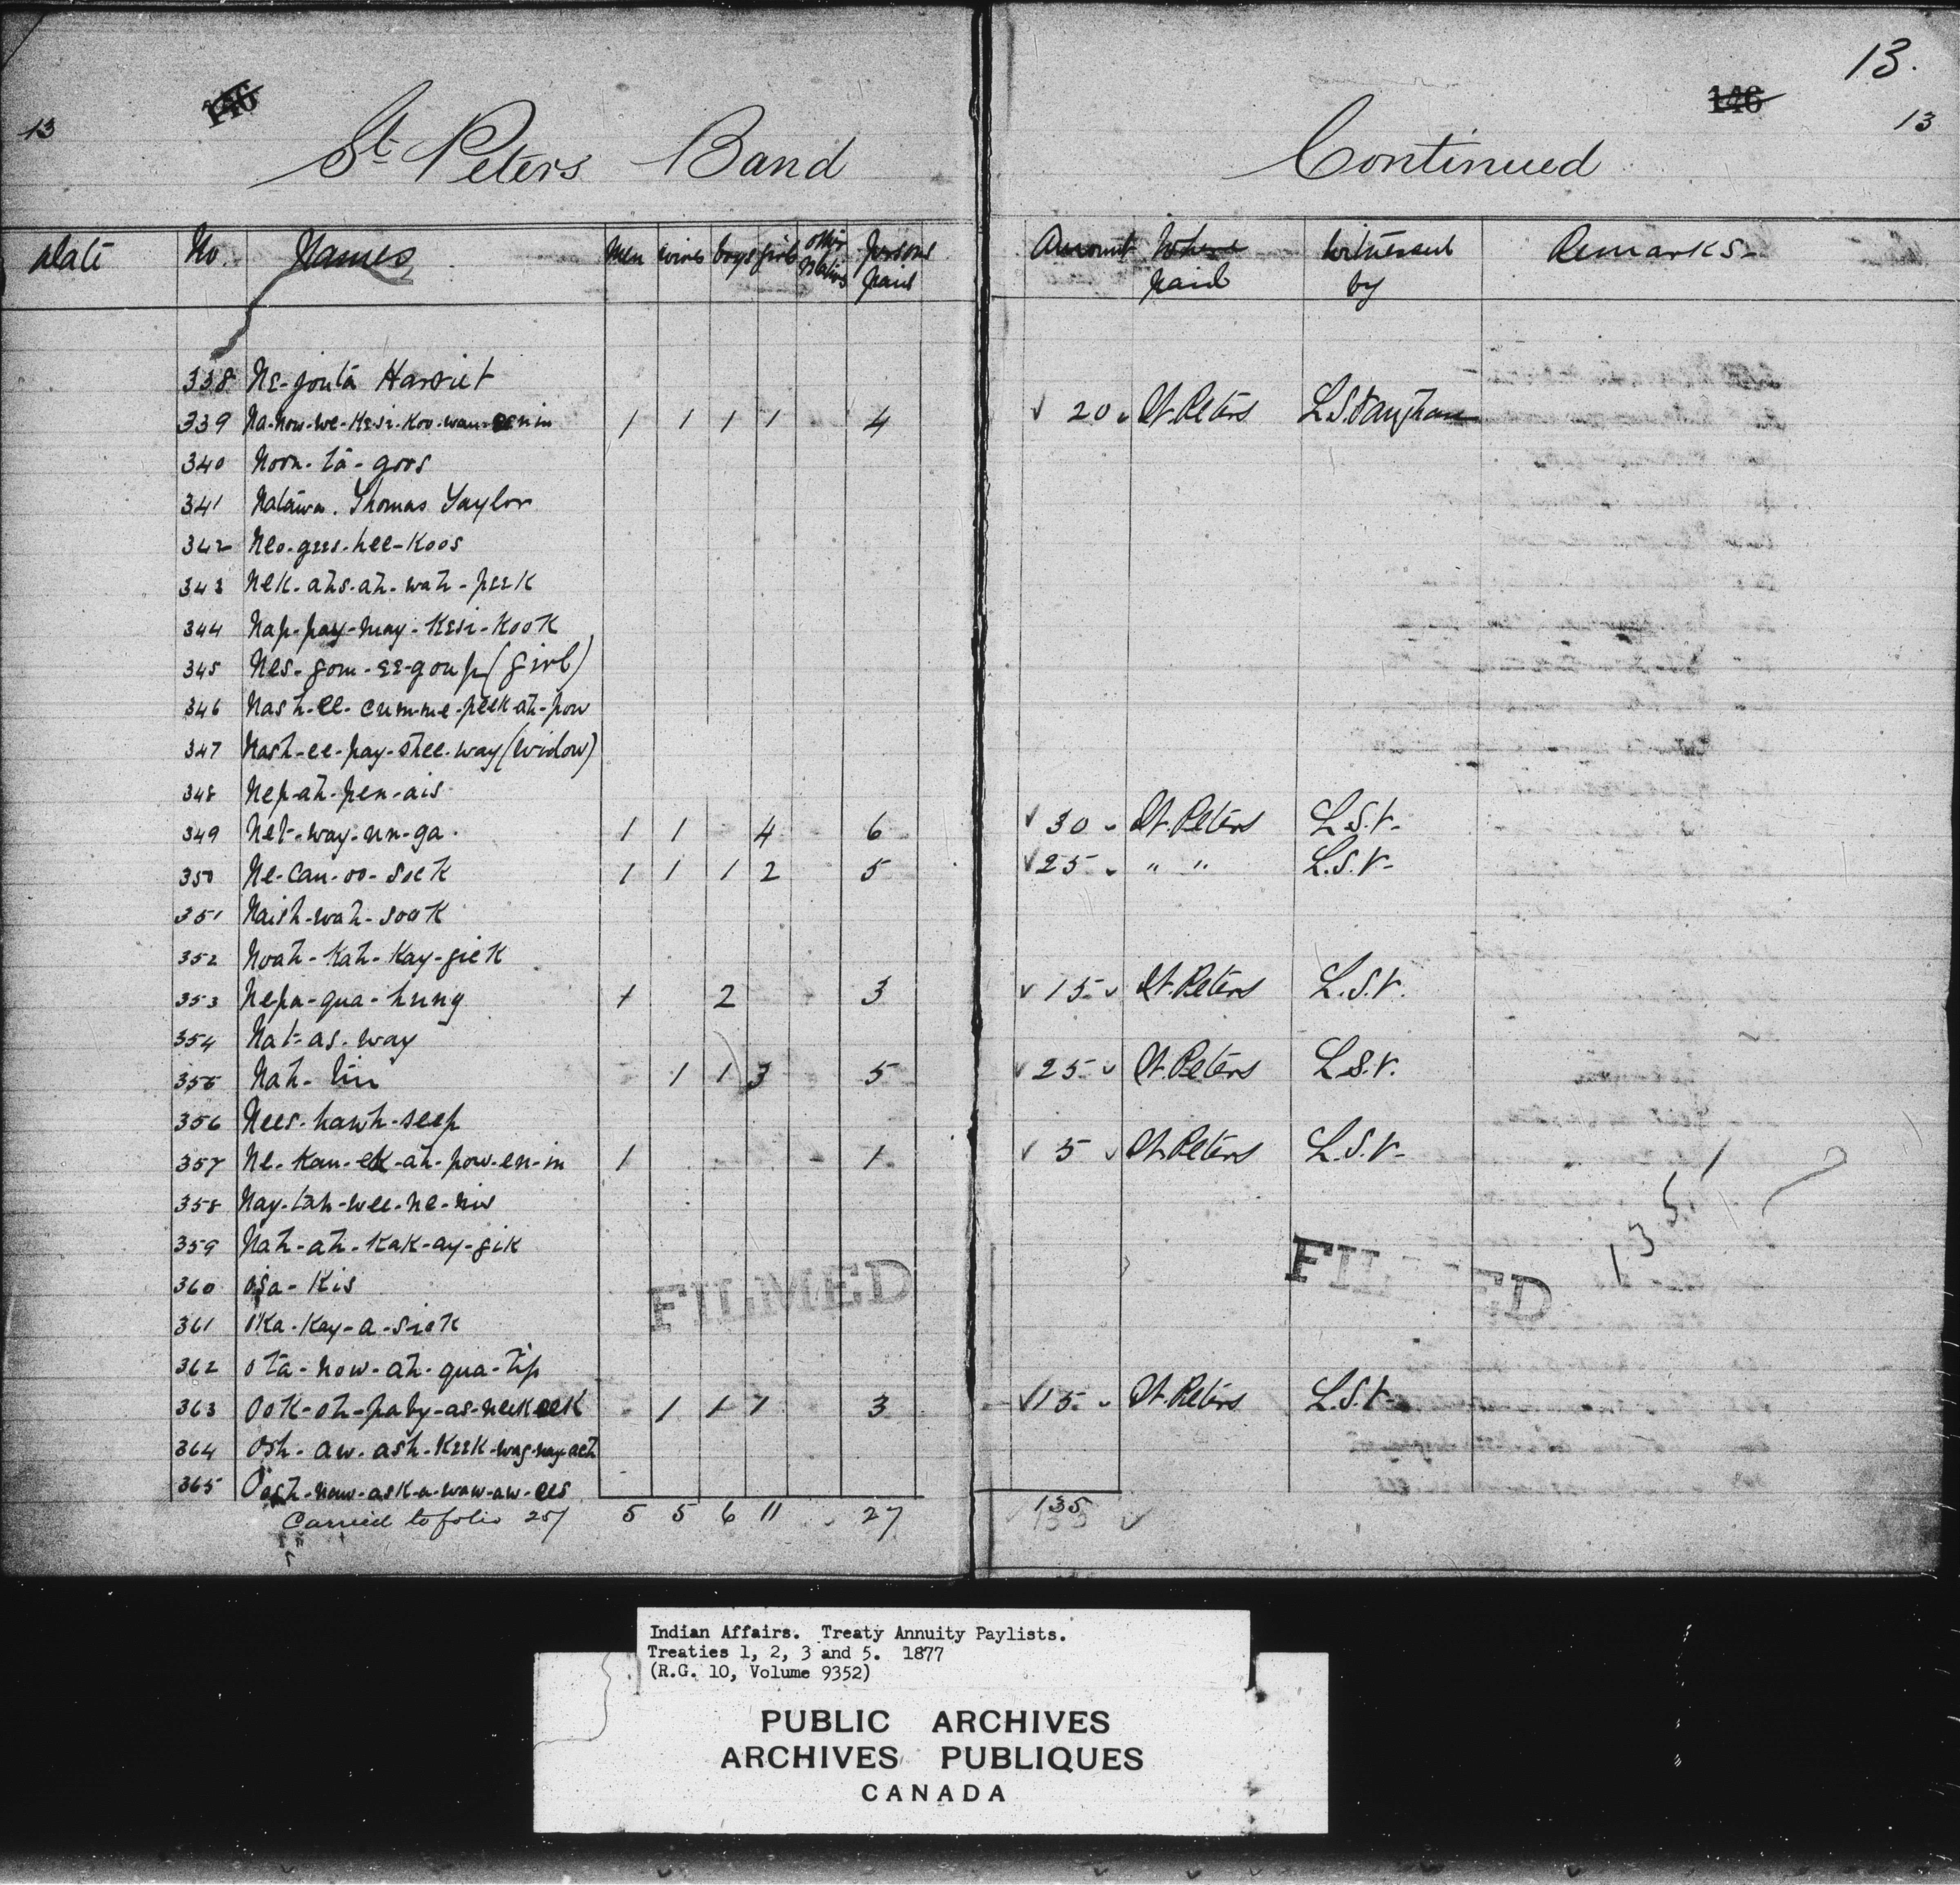 13.
146 146
13 13
St. Peters Band Continued
Date No. Names Men wives boys girls other relatives persons paid Amount Where paid Witnessed by Remarks
338 Ne-jonta Harriet
339 Na-now-we-Kesi-Koo-wan-enin 1 1 1 1 4 20 St. Peters L.S. Vaughan
340 Noon-ta-goos
341 Natawa. Thomas Taylor
342 Neo-gees-hee-Koos
343 Nek-ahs-ah-wah-peek
344 Nap-pay-may-Kesi-Kook
345 Nes-gom-ee-goup (girl)
346 Nash-ee-cum-me-peek-ah-pow
347 Nash-ee-pay-shee-way (Widow)
348 Nep-ah-pen-ais
349 Net-way-un-ga 1 1 4 6 30 St. Peters L.S.V.
350 Ne-can-oo-seek 1 1 1 2 5 25 " " L.S.V.
351 Naish-wah-sook
352 Noah-Kah-Kay-gick
353 Nepa-qua-hung 1 2 3 15 St. Peters L.S.V.
354 Nat-as-way
355 Nah-tin 1 1 3 5 25 St. Peters L.S.V.
356 Nees-hawh-seep
357 Ne-Kan-ek-ah-pow-en-in 1 1 5 St. Peters L.S.V.
358 Nay-tah-wee-ne-niw
359 Nah-ah-Kak-ay-gik
360 osa-Kis
361 oka-Kay-a-sick
362 ota-now-ah-qua-tip
363 Ook-oh-paby-as-neekeek 1 1 1 3 15 St. Peters L.S.V.
364 Osh-aw-ash-Keek-wag-nay-ach
365 Oosh-naw-ask-a-waw-aw-ees
Carried to folio 257 5 5 6 11 27 135
135
1351
FILMED FILMED
Indian Affairs. Treaty Annuity Paylists.
Treaties 1, 2, 3 and 5. 1877
(R.G. 10, Volume 9352)
PUBLIC ARCHIVES
ARCHIVES PUBLIQUES
CANADA